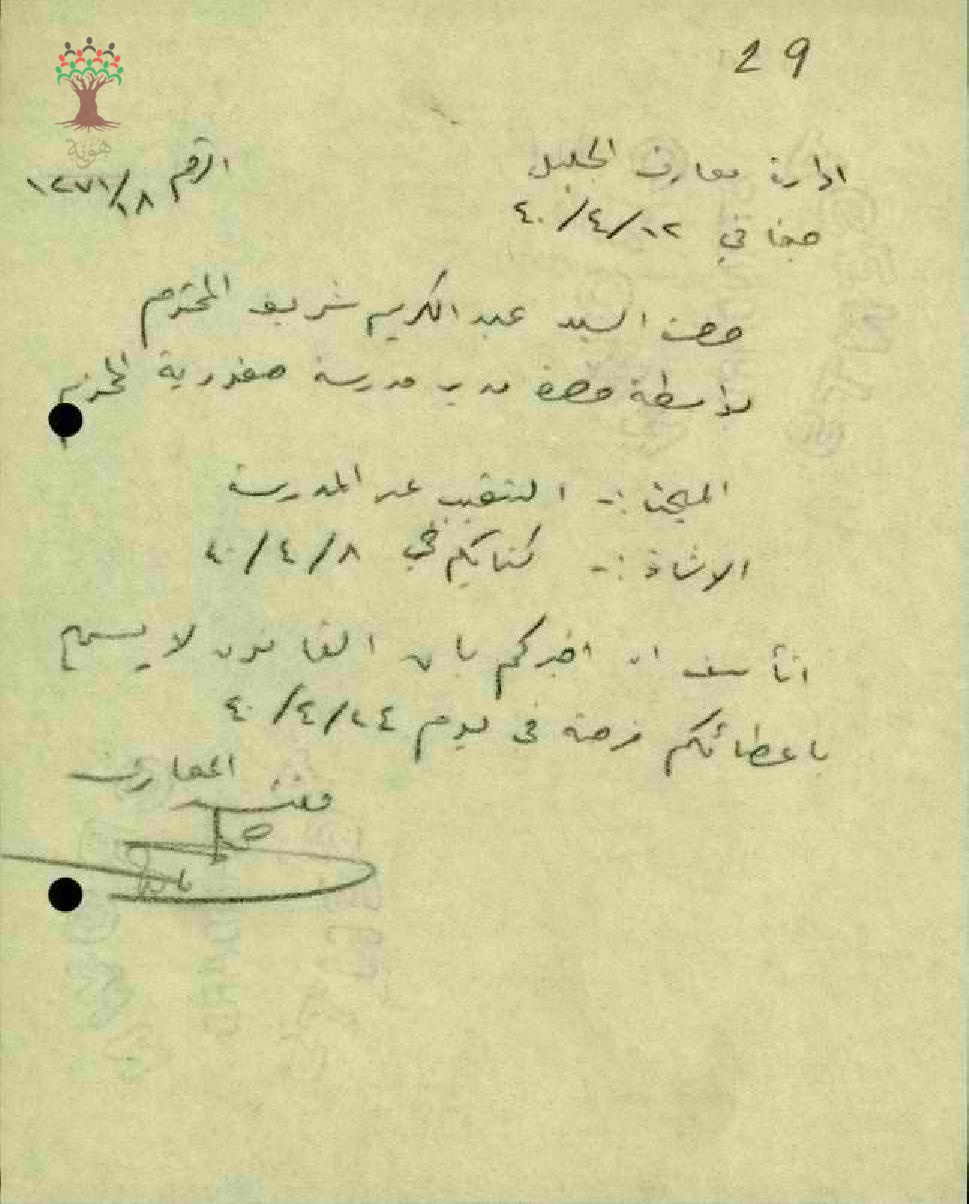 29
هوية
ادارة معارف الجليل
الرقم ١٨/١٢٧١
صفا في ١٢/٤/٤٠
حضرة السيد عبد الكريم شريف المحترم
بواسطة حضرة مدير مدرسة صفورية المحترم
المبحث :- التغيب عن المدرسة
الاشارة :- كتابكم في ٨/٤/٤٠
اتأسف ان اخبركم بان القانون لا يسمح
باعطائكم فرصة في يوم ٢٤/٤/٤٠
مفتش المعارف